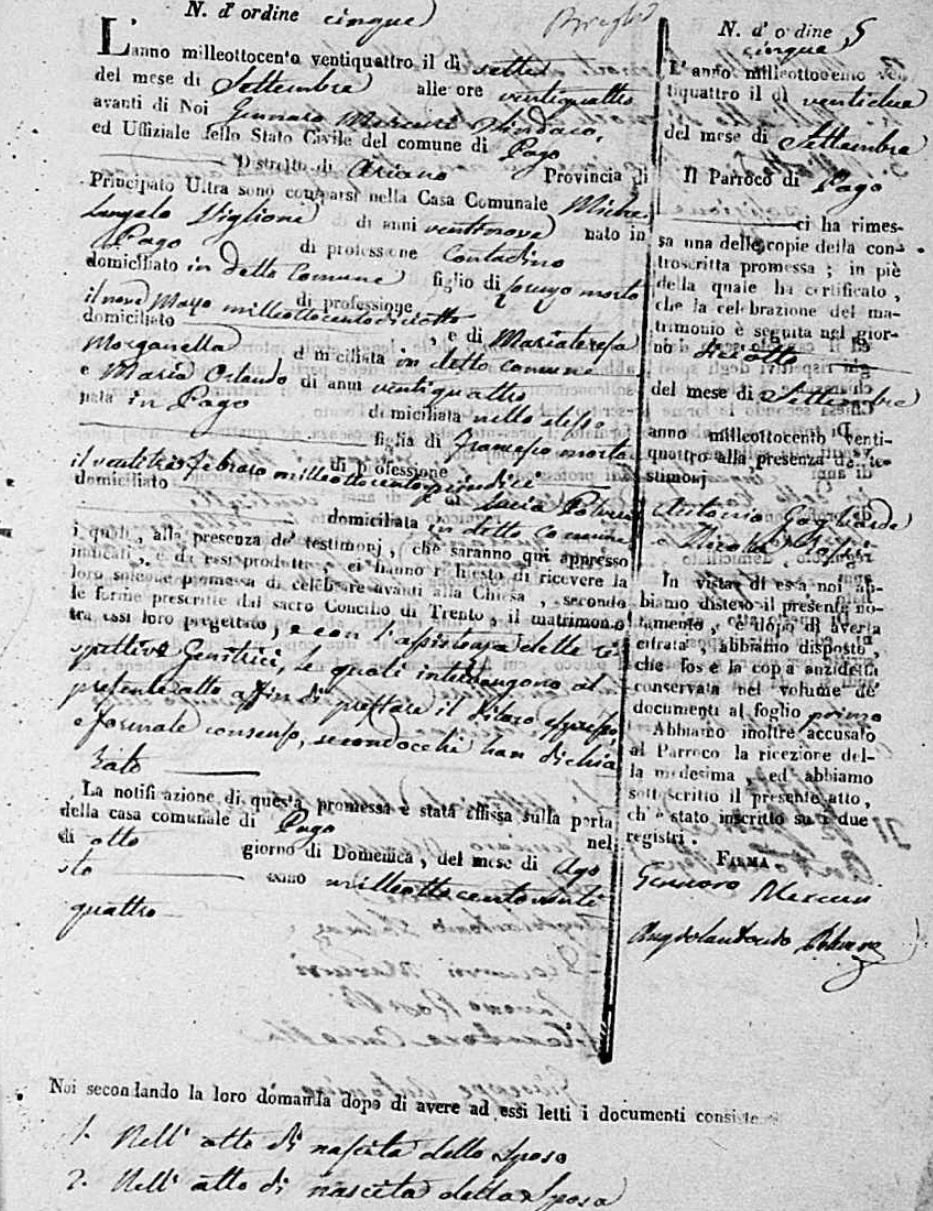 N. d'ordine cinque
L'anno milleottocento ventiquattro il dì sette
del mese di Settembre alle ore ventiquattro
avanti di Noi Gennaro Mercuri Sindaco,
ed Uffiziale dello Stato Civile del comune di Pago
Distretto di Ariano Provincia di
Principato Ultra sono comparsi nella Casa Comunale Miche
langelo Viglione di anni ventinove nato in
Pago di professione Contadino
domiciliato in detto Comune figlio di Lorenzo morto
il nove Mayo milleottocentodiciotto di professione
domiciliato , e di Mariateresa
Morganella , domiciliata in detto comune
e Maria Orlando di anni ventiquattro
nata in Pago domiciliata nello stesso
figlia di Francesco morto
il ventitre febraro milleottocentoquindici di professione
domiciliato e di Lucia
domiciliata in detto Comune
i quali, alla presenza de' testimonj, che saranno qui appresso
indicati, e da essi prodotti, ci hanno richiesto di ricevere la
loro solenne promessa di celebrare avanti alla Chiesa, secondo
le forme prescritte dal sacro Concilio di Trento, il matrimonio
tra essi loro progettato, e con l'assistenza delle ri
spettive Genitrici, le quali intervengono al
presente atto affin di prestare il di loro espresso,
e formale consenso, secondocchè han dichia
rato
La notificazione di questa promessa è stata affissa sulla porta
della casa comunale di Pago nel
dì otto giorno di Domenica, del mese di Ago
sto anno milleottocentoventi
quattro
N. d'ordine 5
cinque
L'anno milleottocento ven
tiquattro il dì ventidue
del mese di Settembre
Il Parroco di Pago
ci ha rimes-
sa una delle copie della con-
troscritta promessa; in piè
della quale ha certificato,
che la celebrazione del ma-
trimonio è seguita nel gior-
no diciotto
del mese di Settembre
anno milleottocento venti-
quattro alla presenza de' te-
stimonj
Antonio Gagliarde
e Nicola
In vista di essa noi ab-
biamo disteso il presente no-
tamento, e dopo di averla
cifrata, abbiamo disposto,
che fosse la copia anzidetta
conservata nel volume de'
documenti al foglio primo
Abbiamo inoltre accusato
al Parroco la ricezione del-
la medesima, ed abbiamo
sottoscritto il presente atto,
ch'è stato inscritto su'i due
registri.
FIRMA
Gennaro Mercuri
Angelantonio
Noi secondando la loro domanda dopo di avere ad essi letti i documenti consiste
1. Nell' atto di nascita dello Sposo
2. Nell' atto di nascita della Sposa